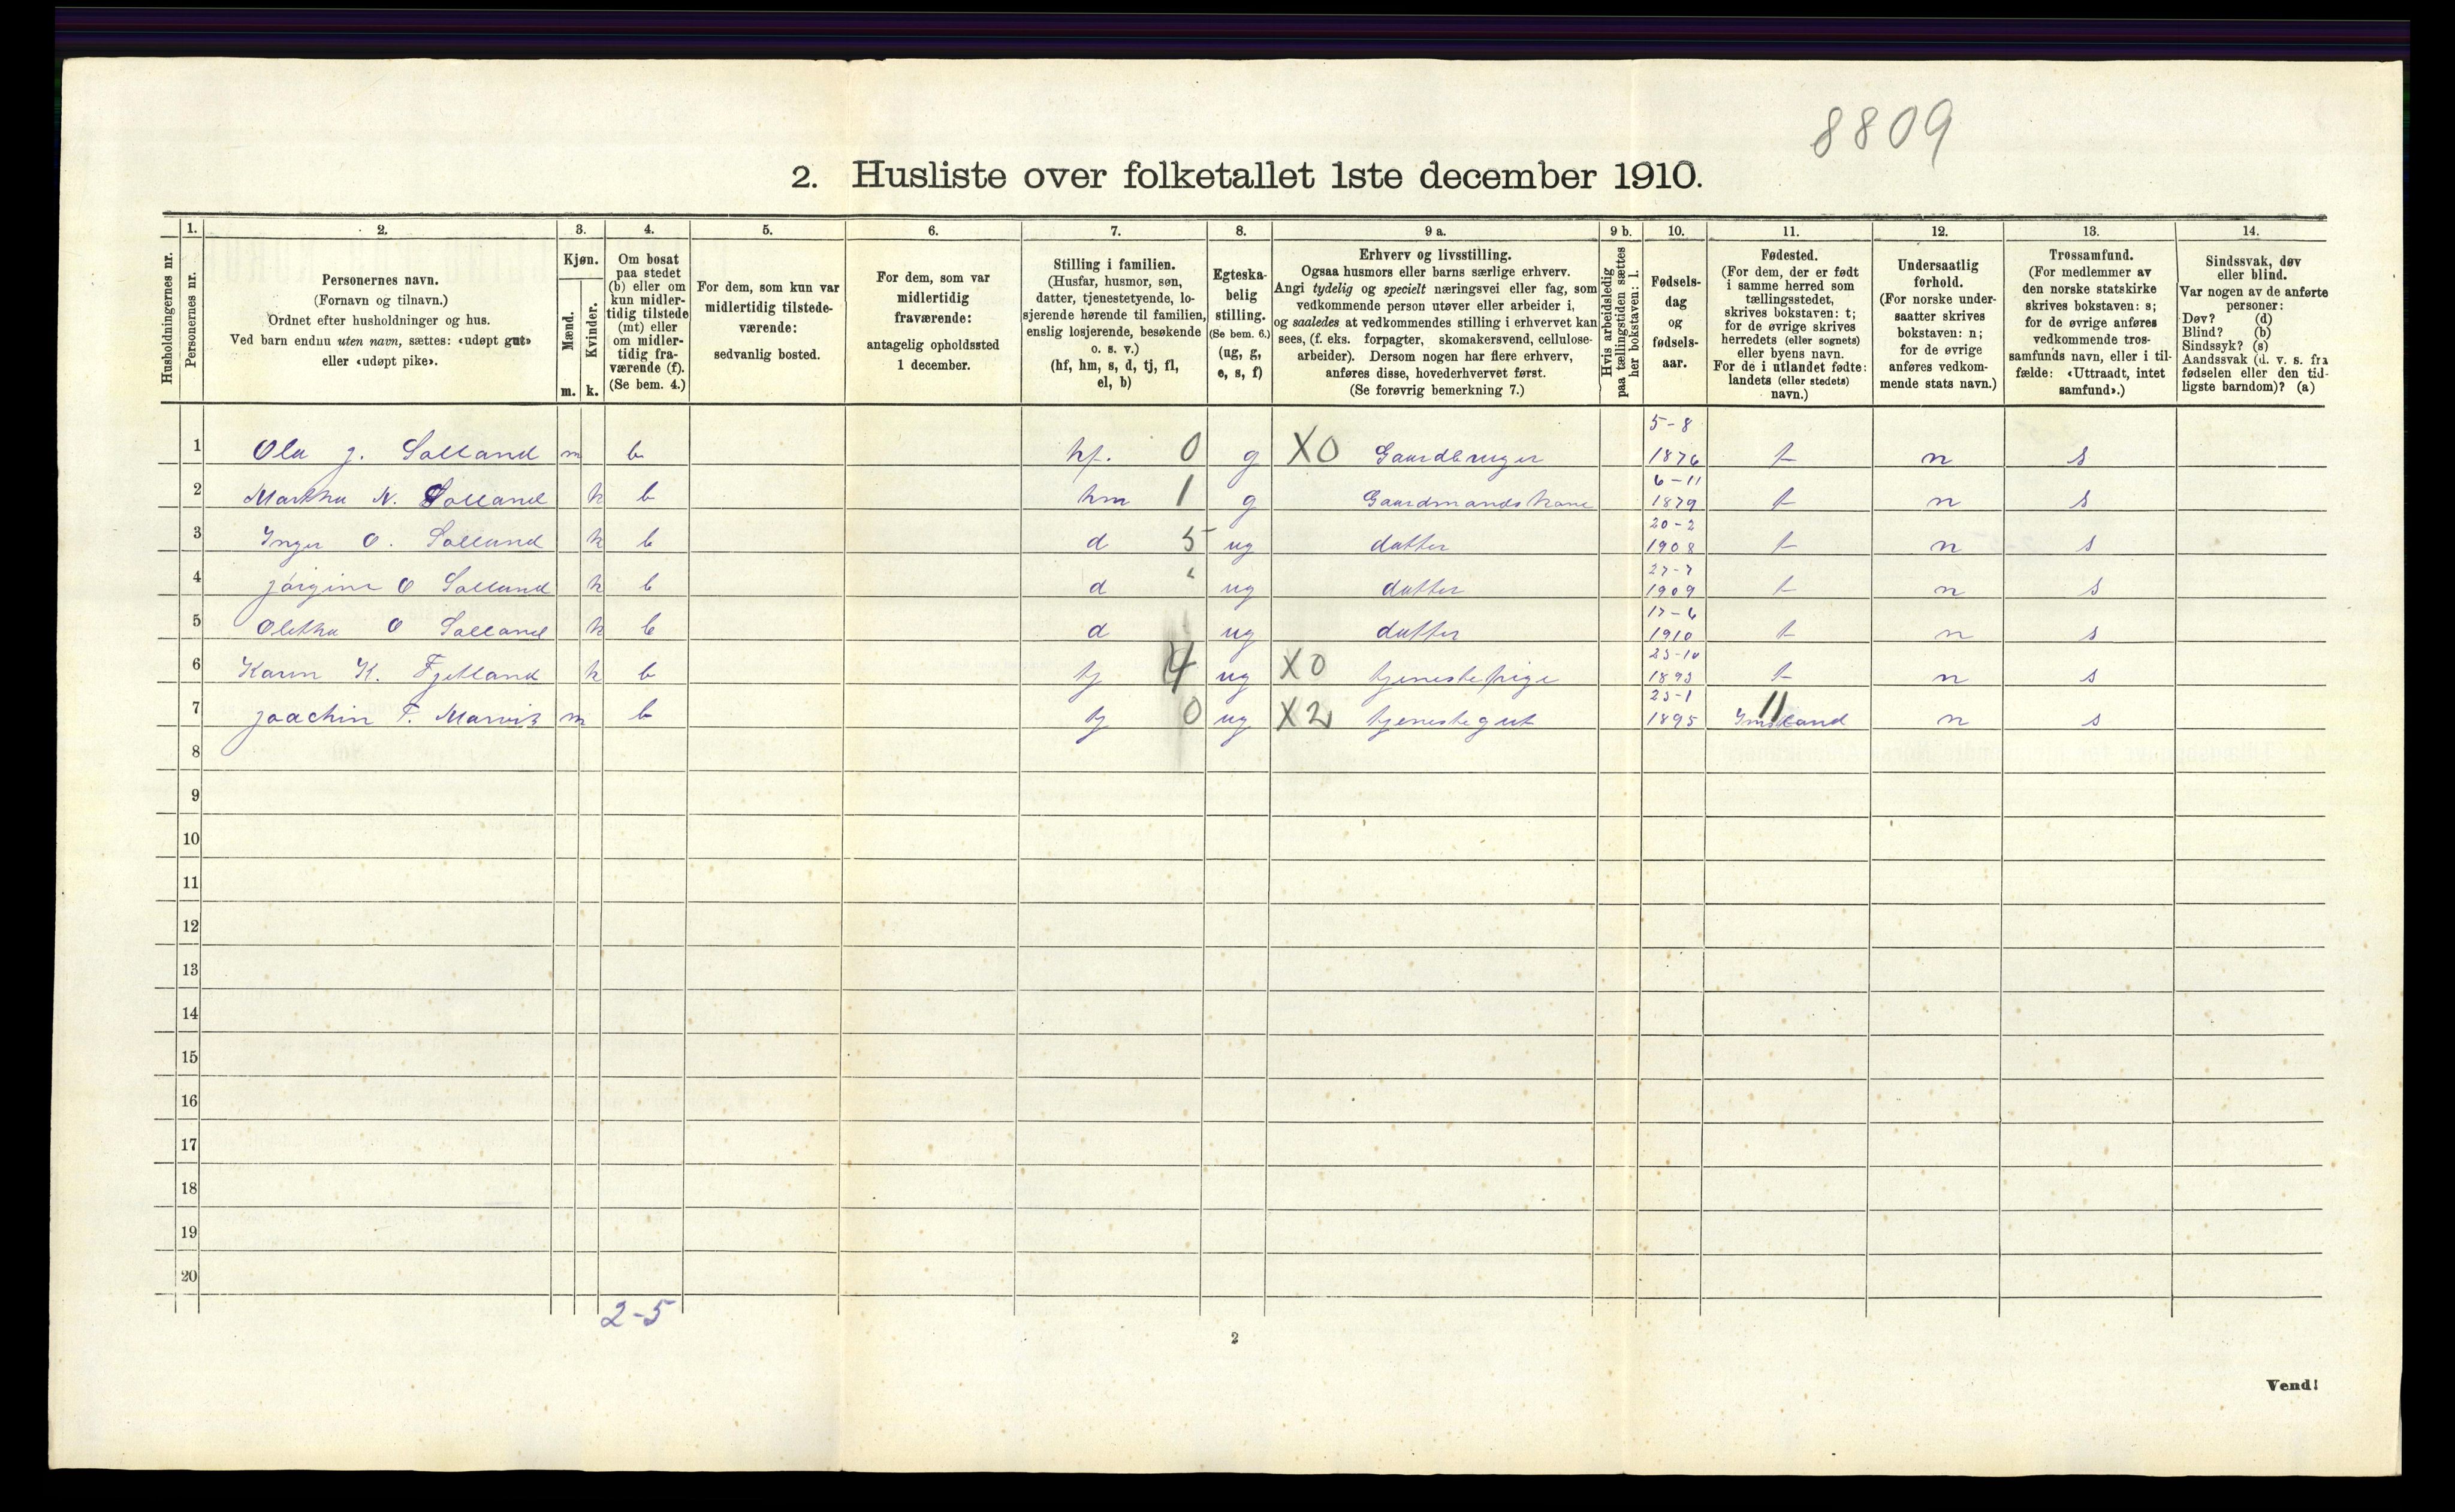 8809
2. Husliste over folketallet 1ste december 1910.
Husholdningernes nr.
1.
Personernes nr.
2.
Personernes navn.
(Fornavn og tilnavn.)
Ordnet efter husholdninger og hus.
Ved barn endnu uten navn, sættes: «udøpt gut»
eller «udøpt pike».
3.
Kjøn.
Mænd.
Kvinder.
m. k.
4.
Om bosat
paa stedet
(b) eller om
kun midler-
tidig tilstede
(mt) eller
om midler-
tidig fra-
værende (f).
(Se bem. 4.)
5.
For dem, som kun var
midlertidig tilstede-
værende:
sedvanlig bosted.
6.
For dem, som var
midlertidig
fraværende:
antagelig opholdssted
1 december.
7.
Stilling i familien.
(Husfar, husmor, søn,
datter, tjenestetyende, lo-
sjerende hørende til familien,
enslig losjerende, besøkende
o. s. v.)
(hf, hm, s, d, tj, fl,
el, b)
8.
Egteska-
belig
stilling.
(Se bem. 6.)
(ug, g,
e, s, f)
9 a.
Erhverv og livsstilling.
Ogsaa husmors eller barns særlige erhverv.
Angi tydelig og specielt næringsvei eller fag, som
vedkommende person utøver eller arbeider i,
og saaledes at vedkommendes stilling i erhvervet kan
sees, (f. eks. forpagter, skomakersvend, cellulose-
arbeider). Dersom nogen har flere erhverv,
anføres disse, hovederhvervet først.
(Se forøvrig bemerkning 7.)
9 b.
Hvis arbeidsledig
paa tællingstiden sættes
her bokstaven: l.
10.
Fødsels-
dag
og
fødsels-
aar.
11.
Fødested.
(For dem, der er født
i samme herred som
tællingsstedet,
skrives bokstaven: t;
for de øvrige skrives
herredets (eller sognets)
eller byens navn.
For de i utlandet fødte:
landets (eller stedets)
navn.)
12.
Undersaatlig
forhold.
(For norske under-
saatter skrives
bokstaven: n;
for de øvrige
anføres vedkom-
mende stats navn.)
13.
Trossamfund.
(For medlemmer av
den norske statskirke
skrives bokstaven: s;
for de øvrige anføres
vedkommende tros-
samfunds navn, eller i til-
fælde: «Uttraadt, intet
samfund».)
14.
Sindssvak, døv
eller blind.
Var nogen av de anførte
personer:
Døv? (d)
Blind? (b)
Sindssyk? (s)
Aandssvak (d. v. s. fra
fødselen eller den tid-
ligste barndom)? (a)
1 Ola J. Solland m b hf. 0 g X0 Gaardbruger 5-8 1876 t n s
2 Martha N. Solland k b hm 1 g Gaardmandskone 6-11 1879 t n s
3 Inger O. Solland k b d 5 ug datter 20-2 1908 t n s
4 Jørgine O Solland k b d " ug datter 27-7 1909 t n s
5 Oletha O Solland k b d ug datter 17-6 1910 t n s
6 Karen K. Fjetland k b tj 4 ug X0 tjenestepige 25-10 1893 t n s
7 Joachin T. Marvik m b tj 0 ug X2 tjenestegut 25-1 1895 Imsland 11 n s
8
9
10
11
12
13
14
15
16
17
18
19
20
2-5
2
Vend!